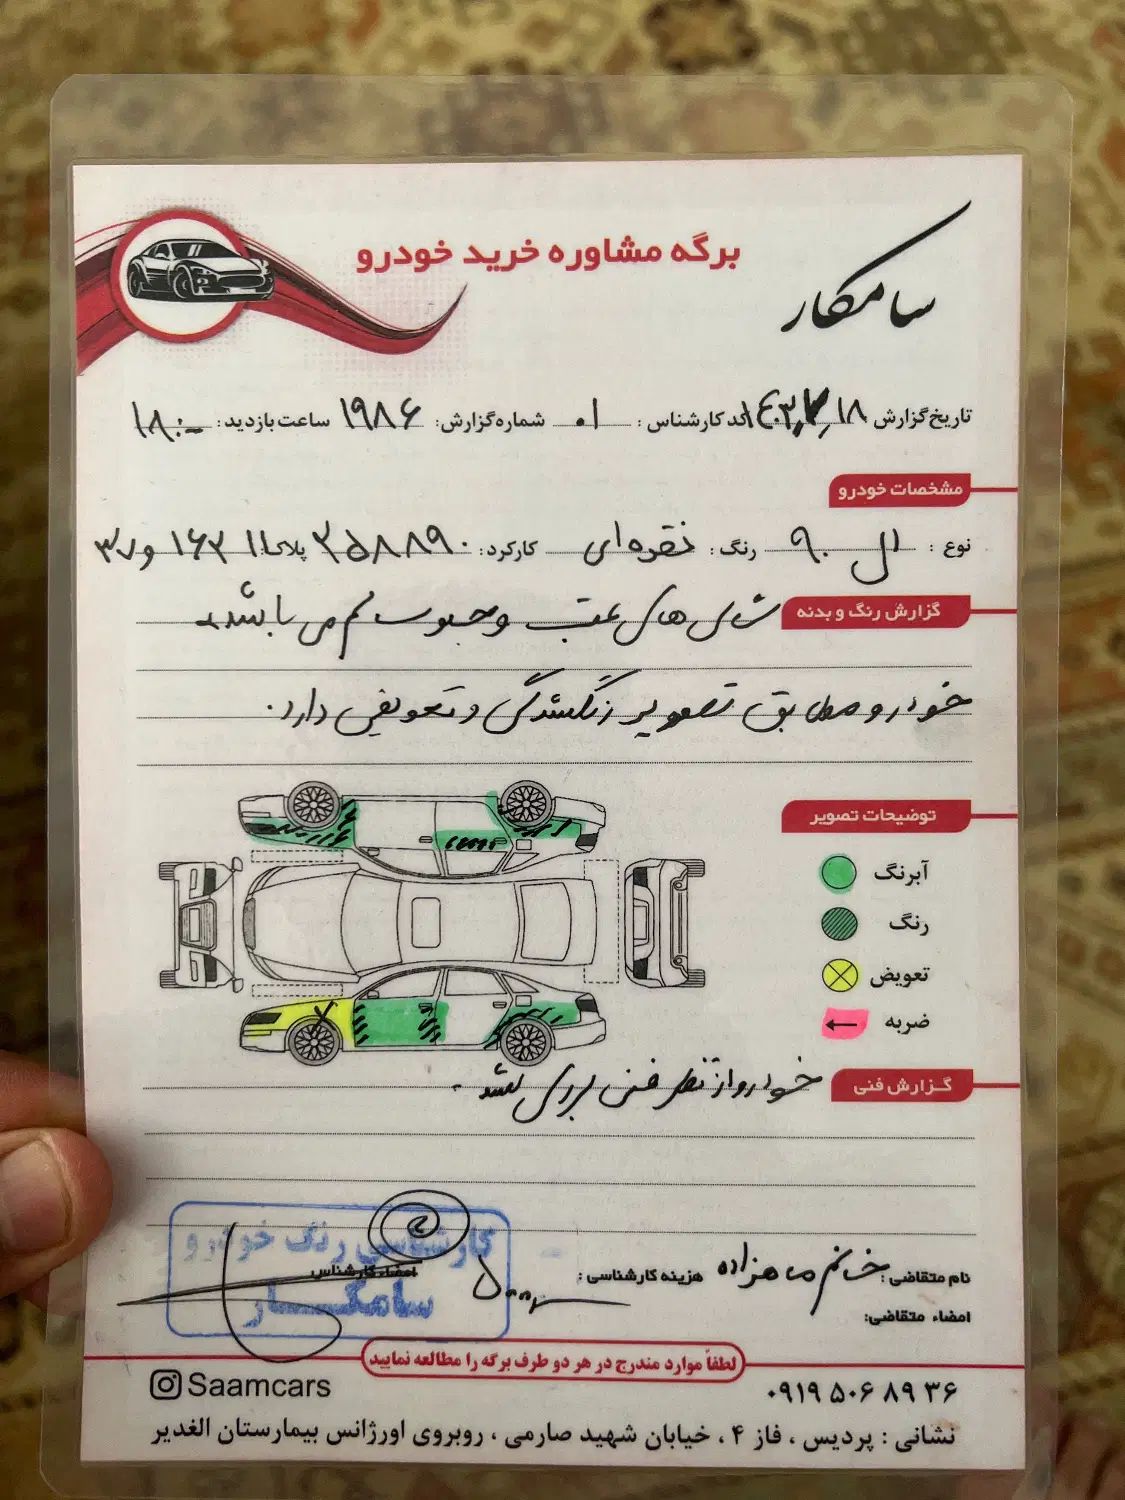 برگه مشاوره خرید خودرو
سامکار
تاریخ گزارش ۱۴۰۳٫۷٫۱۸ کد کارشناس : ۰۱ شماره گزارش: ۱۹۸۶ ساعت بازدید: ۱۸:۰۰
مشخصات خودرو
نوع : ال ۹۰ رنگ: نقره ای کارکرد: ۳۵۸۸۹۰ پلاک: ۱۱ ۱۶۳ و ۳۷
گزارش رنگ و بدنه
شاسی های عقب و جلو سالم می باشد
خودرو مطابق تصویر رنگ‌شدگی و تعویض دارد.
توضیحات تصویر
آبرنگ
رنگ
تعویض
ضربه
گزارش فنی
خودرو از نظر فنی بررسی نشد.
کارشناسی رنگ خودرو
سامکار
امضاء کارشناس
نام متقاضی: خانم ماهزاده هزینه کارشناسی :
امضاء متقاضی:
لطفاً موارد مندرج در هر دو طرف برگه را مطالعه نمایید
Saamcars
۰۹۱۹ ۵۰۶ ۸۹ ۳۶
نشانی : پردیس ، فاز ۴ ، خیابان شهید صارمی ، روبروی اورژانس بیمارستان الغدیر